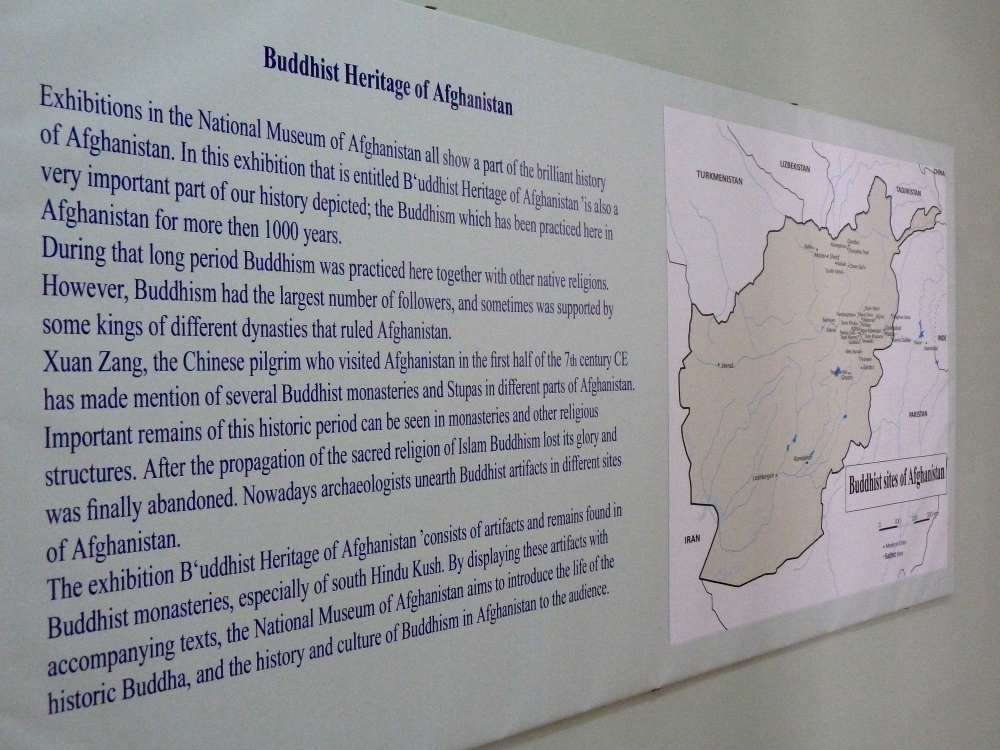 Buddhist Heritage of Afghanistan
Exhibitions in the National Museum of Afghanistan all show a part of the brilliant history
of Afghanistan. In this exhibition that is entitled B‘uddhist Heritage of Afghanistan ’is also a
very important part of our history depicted; the Buddhism which has been practiced here in
Afghanistan for more then 1000 years.
During that long period Buddhism was practiced here together with other native religions.
However, Buddhism had the largest number of followers, and sometimes was supported by
some kings of different dynasties that ruled Afghanistan.
Xuan Zang, the Chinese pilgrim who visited Afghanistan in the first half of the 7th century CE
has made mention of several Buddhist monasteries and Stupas in different parts of Afghanistan.
Important remains of this historic period can be seen in monasteries and other religious
structures. After the propagation of the sacred religion of Islam Buddhism lost its glory and
was finally abandoned. Nowadays archaeologists unearth Buddhist artifacts in different sites
of Afghanistan.
The exhibition B‘uddhist Heritage of Afghanistan ’consists of artifacts and remains found in
Buddhist monasteries, especially of south Hindu Kush. By displaying these artifacts with
accompanying texts, the National Museum of Afghanistan aims to introduce the life of the
historic Buddha, and the history and culture of Buddhism in Afghanistan to the audience.
CHINA
UZBEKISTAN
TURKMENISTAN
TAJIKISTAN
Herat
PAKISTAN
Kandahar
Lashkargah
Buddhist sites of Afghanistan
IRAN